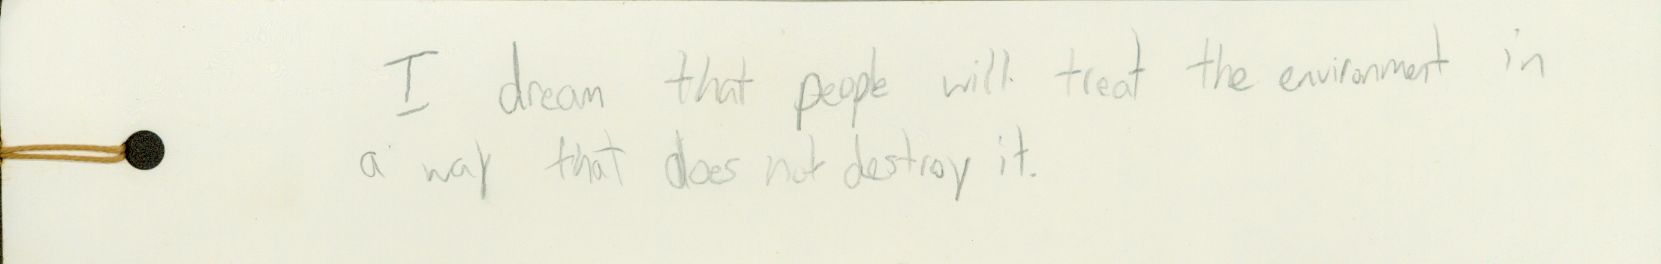 I dream that people will treat the environment in
a way that does not destroy it.